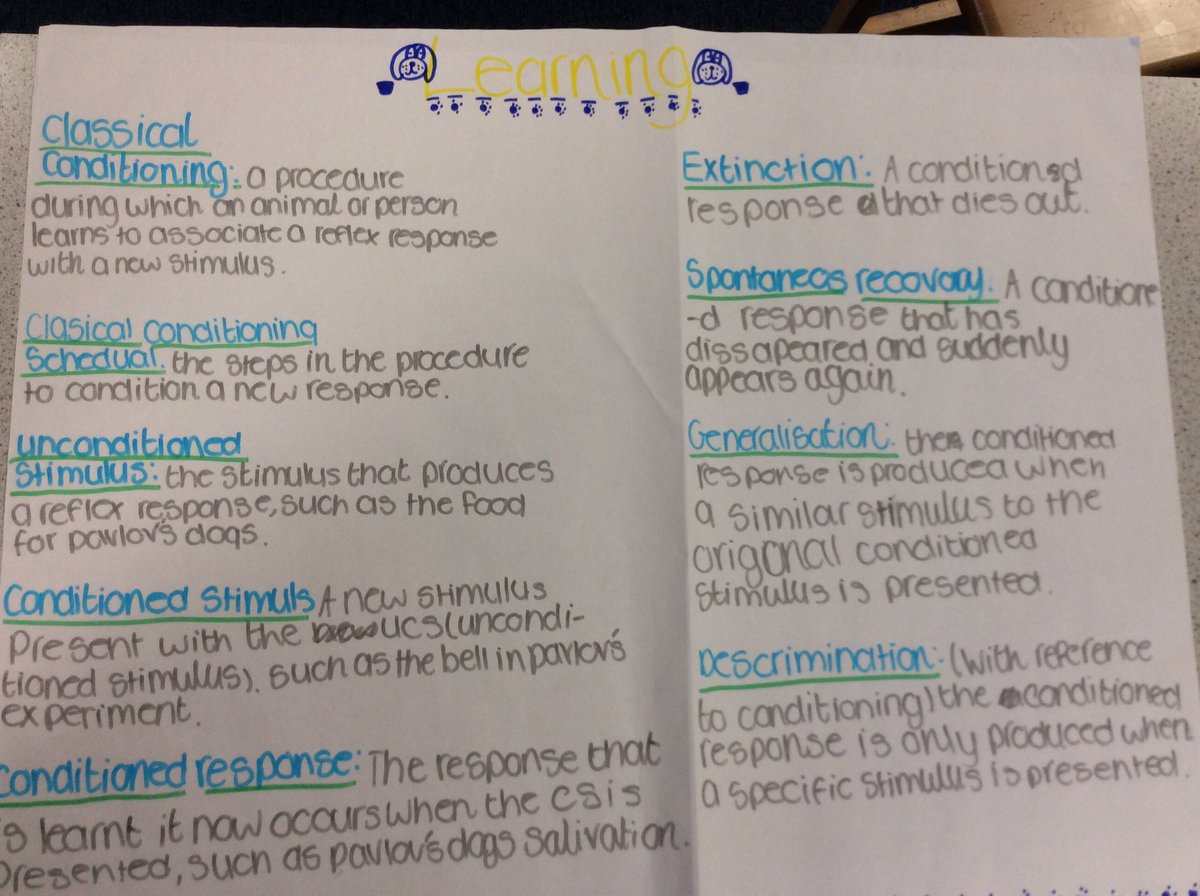 Learning
Classical
Conditioning: a procedure
during which an animal or person
learns to associate a reflex response
with a new stimulus.
Clasical conditioning
Schedual. the steps in the procedure
to condition a new response.
unconditioned
Stimulus: the stimulus that produces
a reflex response, such as the food
for pavlov's dogs.
Conditioned Stimuls A new stimulus
Present with the UCS (uncondi-
tioned stimulus). such as the bell in pavlov's
experiment.
Conditioned response: The response that
is learnt it now occurs when the CS is
Presented, such as pavlov's dogs salivation.
Extinction: A conditioned
response that dies out.
Spontaneos recovory. A conditione
-d response that has
dissapeared, and suddenly
appears again.
Generalisation: the conditioned
response is produced when
a similar stimulus to the
origonal conditioned
stimulus is presented.
Descrimination: (with reference
to conditioning) the conditioned
response is only produced when
a specific stimulus is presented.